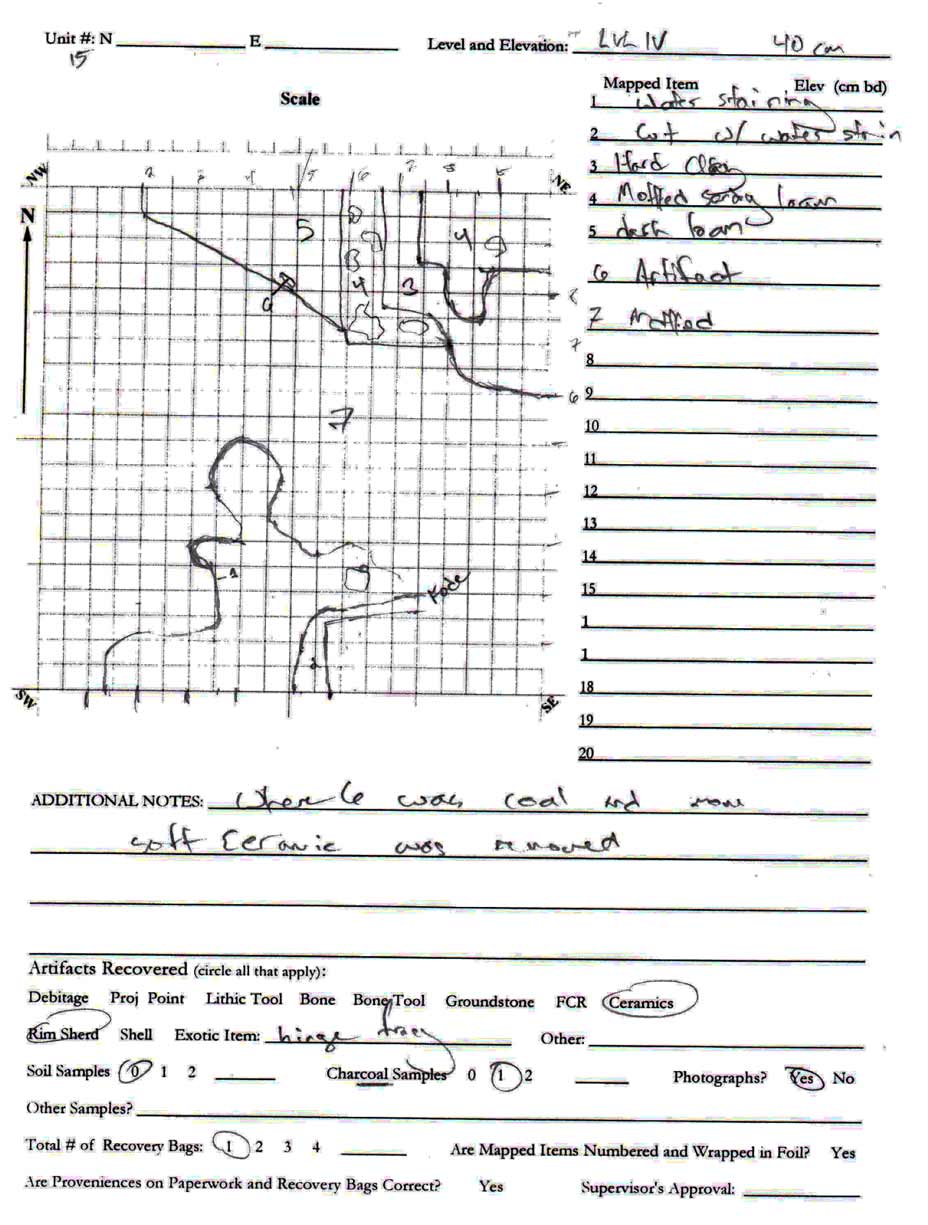 Unit #: N E Level and Elevation: LVL IV 40 cm
15
Scale
Mapped Item Elev (cm bd)
1 Water staining
2 Cut w/ water strin
3 Hard Clay
4 Mottled loam
5 dark loam
6 Artifact
7 Mottled
8
9
10
11
12
13
14
15
1
1
18
19
20
NW 2 3 4 5 6 7 8 NE
N
5
4
7
3
4 3
6
8
7
6
7
1
Fade
2
SW SE
ADDITIONAL NOTES: Where 6 was coal and more
soft Ceramic was removed
Artifacts Recovered (circle all that apply):
Debitage Proj Point Lithic Tool Bone Bone Tool Groundstone FCR Ceramics
Rim Sherd Shell Exotic Item: hinge Other:
Soil Samples 0 1 2 Charcoal Samples 0 1 2 Photographs? Yes No
Other Samples?
Total # of Recovery Bags: 1 2 3 4 Are Mapped Items Numbered and Wrapped in Foil? Yes
Are Proveniences on Paperwork and Recovery Bags Correct? Yes Supervisor's Approval: